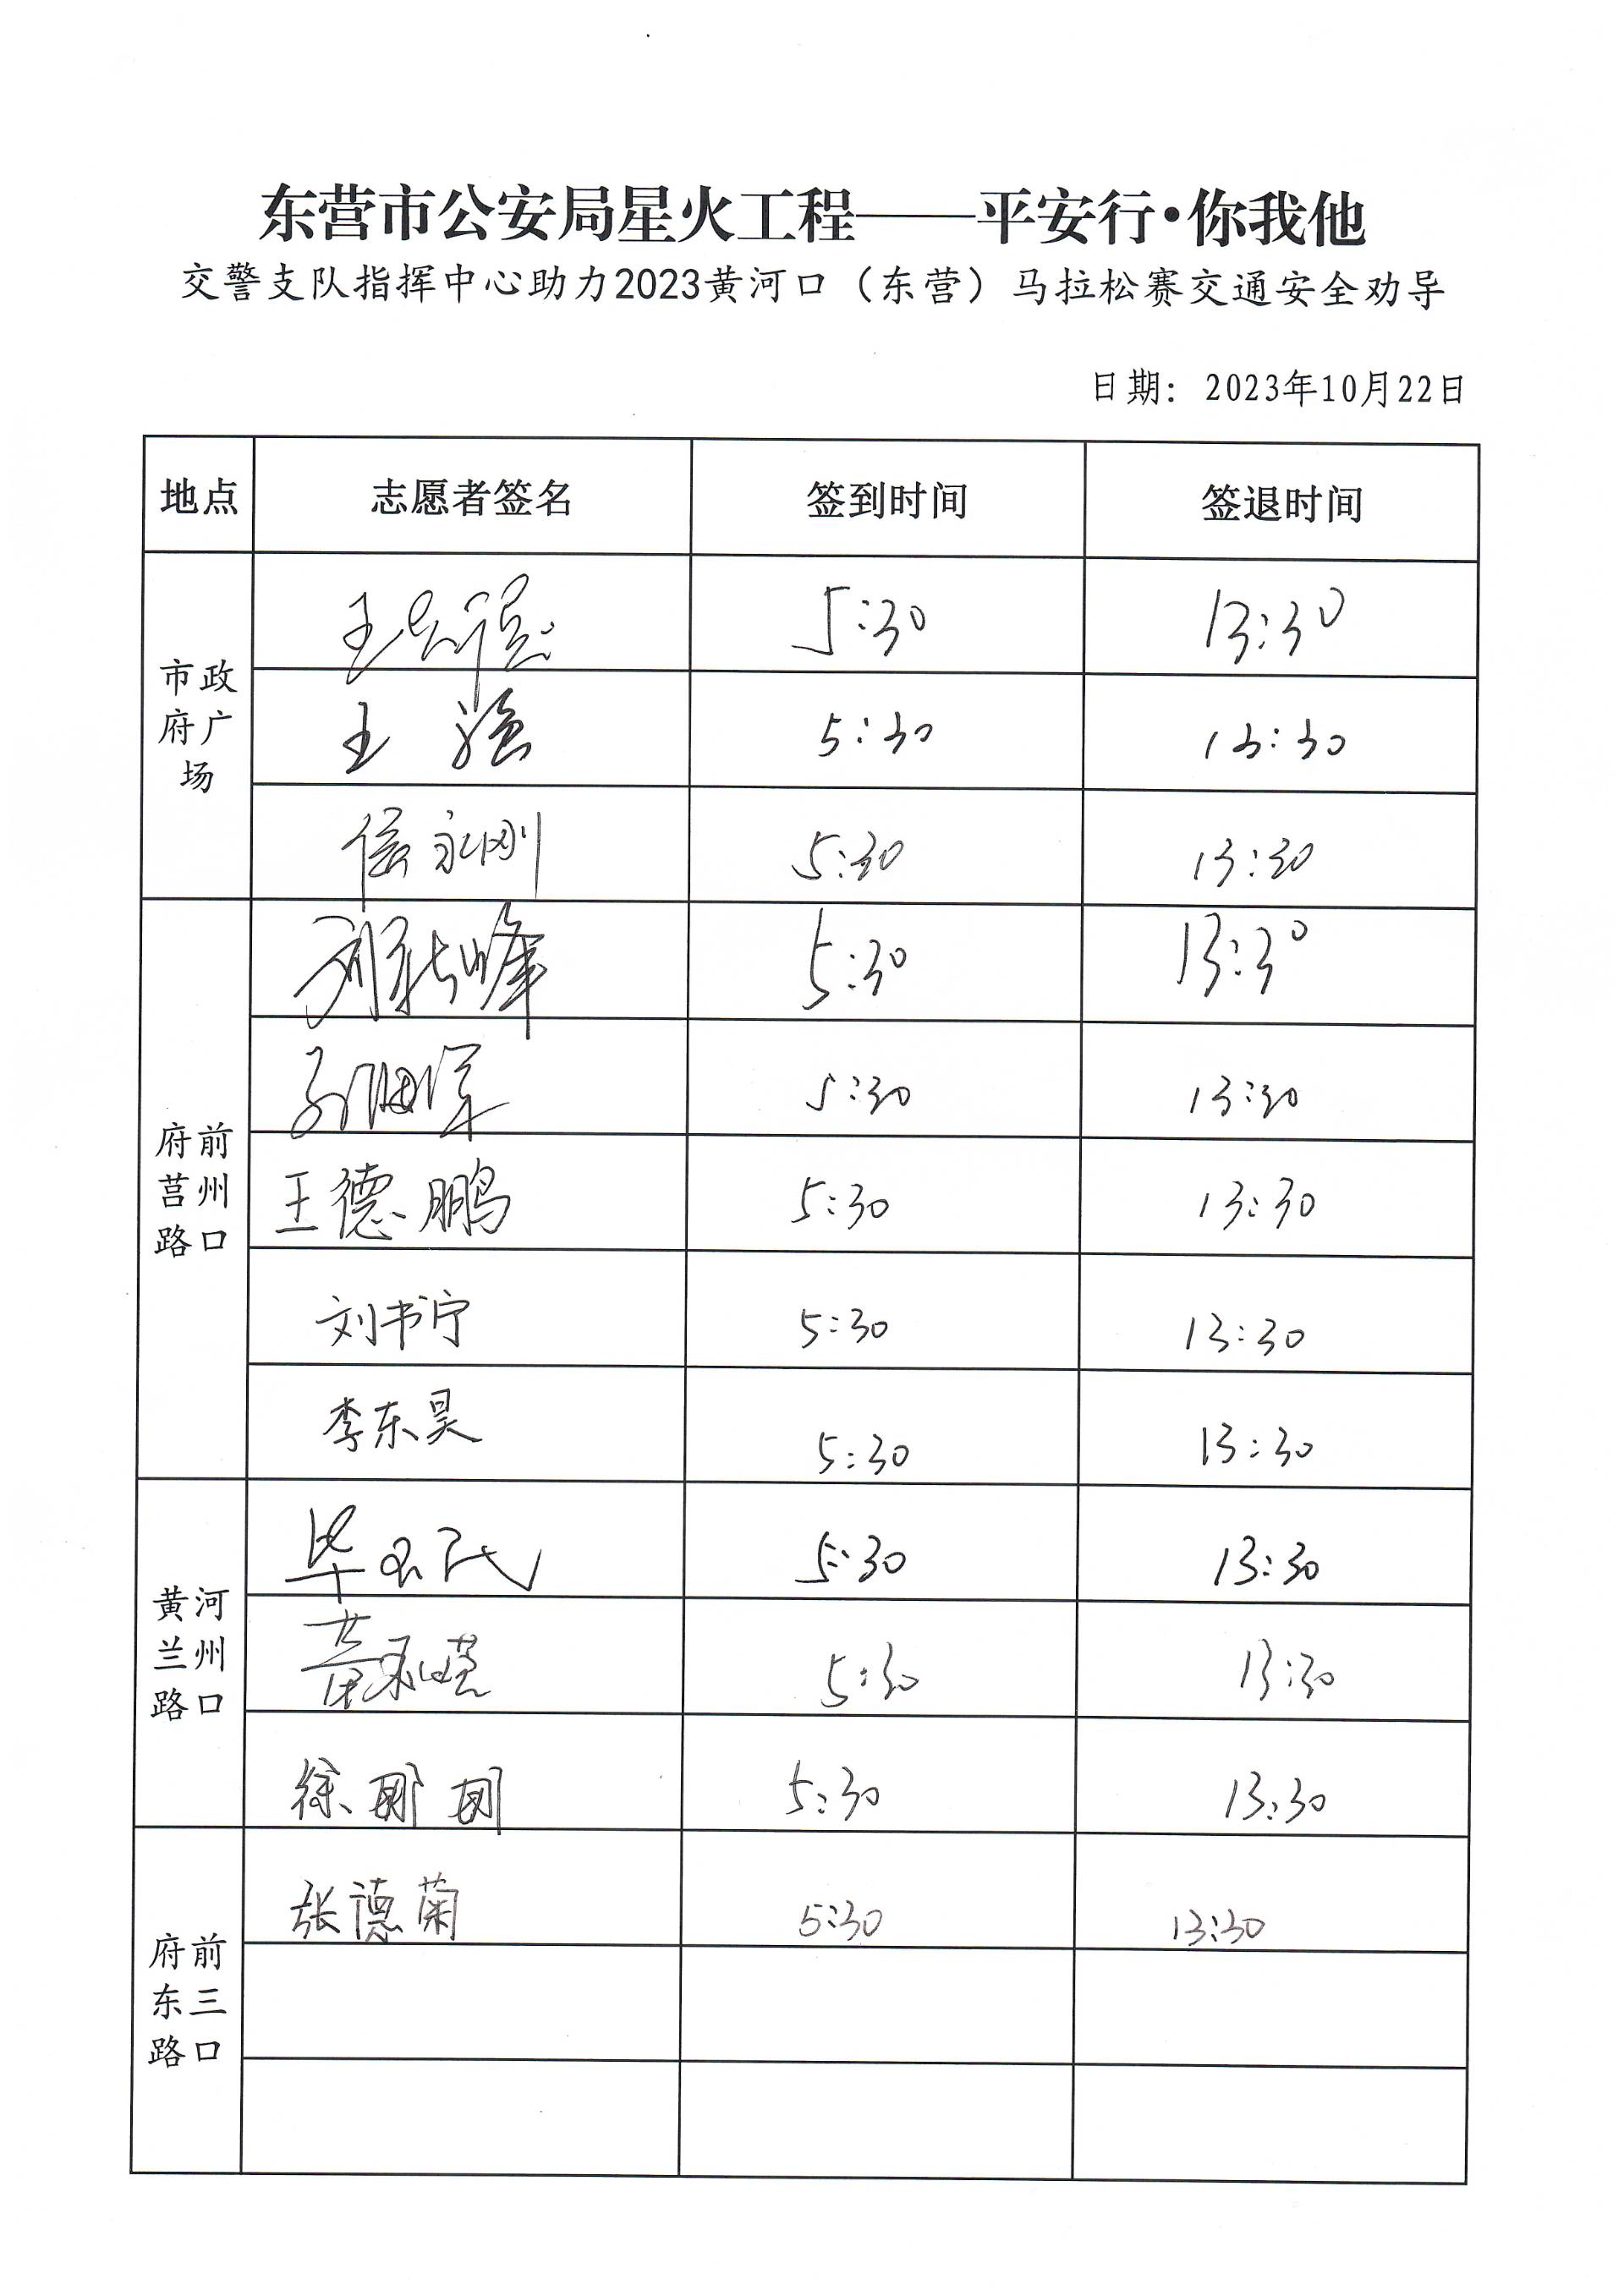 东营市公安局星火工程——平安行•你我他
交警支队指挥中心助力2023黄河口（东营）马拉松赛交通安全劝导
日期：2023年10月22日
地点 志愿者签名 签到时间 签退时间
市政府广场
王 5:30 13:30
王强 5:30 13:30
侯永刚 5:30 13:30
府前莒州路口
峰 5:30 13:30
孙海军 5:30 13:30
王德鹏 5:30 13:30
刘书宁 5:30 13:30
李东昊 5:30 13:30
黄河兰州路口
毕 民 5:30 13:30
5:30 13:30
徐 5:30 13:30
府前东三路口
张德菊 5:30 13:30